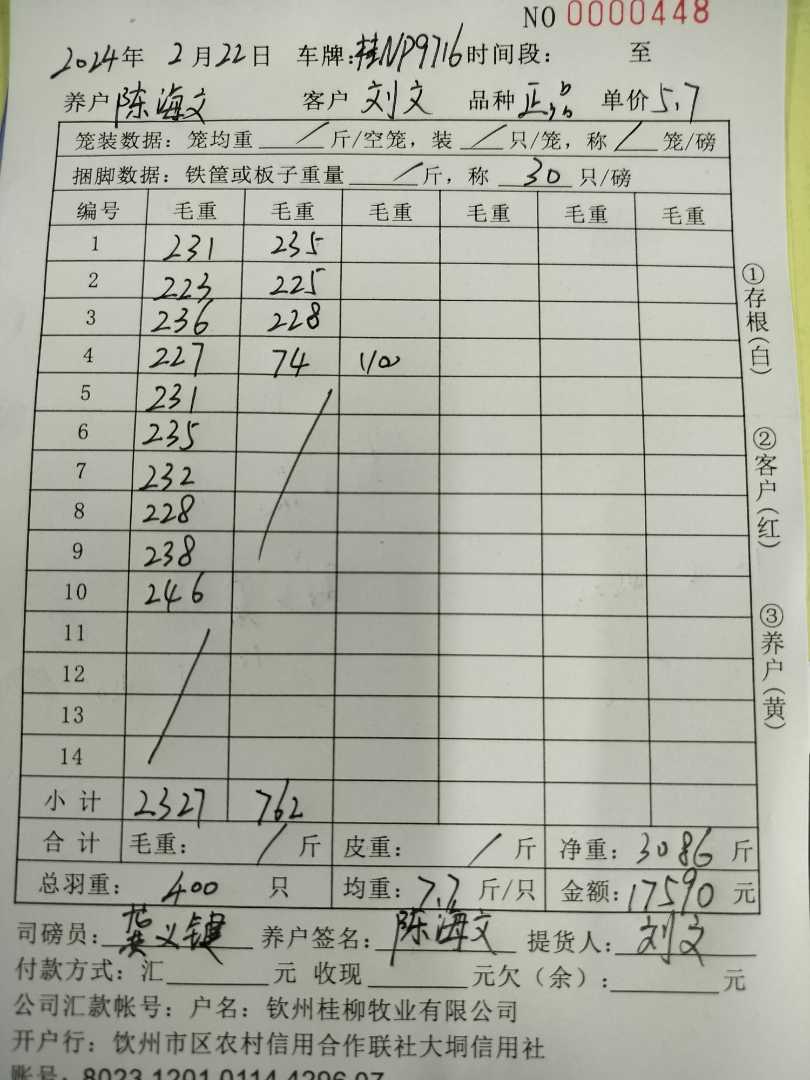 NO 0000448
2024年 2月22日 车牌:桂NP9716 时间段: 至
养户 陈海文 客户 刘文 品种 正品 单价 5.7
笼装数据: 笼均重 / 斤/空笼, 装 / 只/笼, 称 / 笼/磅
捆脚数据: 铁筐或板子重量 / 斤, 称 30 只/磅
编号 毛重 毛重 毛重 毛重 毛重 毛重
1 231 235
2 223 225
3 236 228
4 227 74 1/0
5 231
6 235
7 232
8 228
9 238
10 246
11
12
13
14
小计 2327 762
合计 毛重: / 斤 皮重: / 斤 净重: 3086 斤
总羽重: 400 只 均重: 7.7 斤/只 金额: 17590 元
司磅员: 龚义键 养户签名: 陈海文 提货人: 刘文
付款方式: 汇 元 收现 元欠(余): 元
公司汇款帐号: 户名: 钦州桂柳牧业有限公司
开户行: 饮州市区农村信用合作联社大垌信用社
账号: 8023 1201 0114 4296 07
①存根(白)
②客户(红)
③养户(黄)